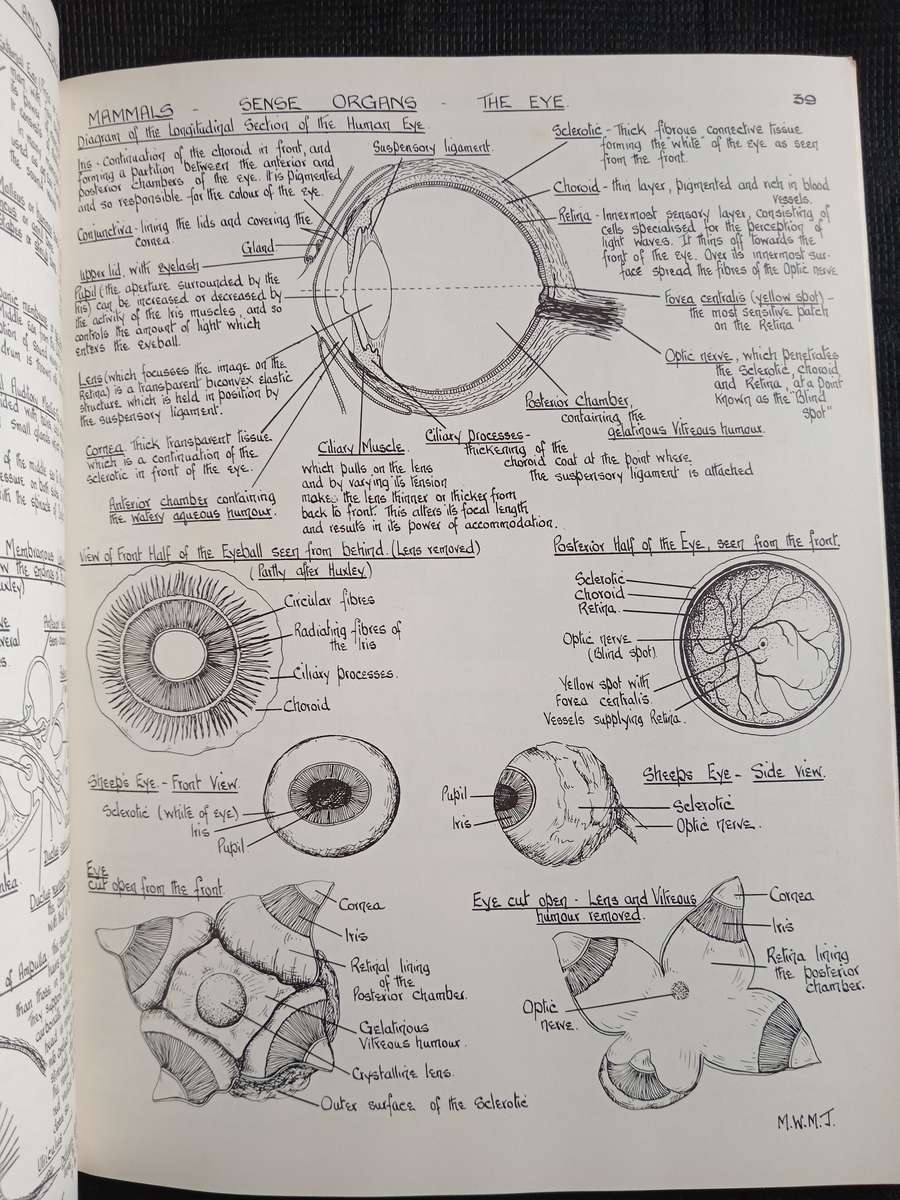 MAMMALS - SENSE ORGANS - THE EYE.
39
Diagram of the Longitudinal Section of the Human Eye
Iris - Continuation of the choroid in front, and
forming a partition between the anterior and
posterior chambers of the eye. It is pigmented
and so responsible for the colour of the eye.
Conjunctiva - lining the lids and covering the
cornea.
Gland
upper lid, with eyelash
Pupil (the aperture surrounded by the
Iris) can be increased or decreased by
the activity of the Iris muscles, and so
controls the amount of light which
enters the eyeball.
Lens (which focusses the image on the
Retina) is a transparent biconvex elastic
structure which is held in position by
the suspensory ligament.
Cornea Thick transparent tissue
which is a continuation of the
sclerotic in front of the eye.
Anterior chamber containing
the watery aqueous humour.
Suspensory ligament.
Sclerotic - Thick fibrous connective tissue
forming the "white" of the eye as seen
from the front.
Choroid - thin layer, pigmented and rich in blood
vessels.
Retina - Innermost sensory layer, consisting of
cells specialised for the perception of
light waves. It thins off towards the
front of the eye. Over its innermost sur-
face spread the fibres of the Optic nerve
Fovea centralis (yellow spot) -
the most sensitive patch
on the Retina
Optic nerve, which penetrates
the Sclerotic, choroid,
and Retina, at a point
known as the "Blind
spot"
Posterior Chamber,
containing the
gelatinous Vitreous humour.
Ciliary Processes -
thickening of the
choroid coat at the point where
the suspensory ligament is attached
Ciliary Muscle.
which pulls on the lens
and by varying its tension
makes the lens thinner or thicker from
back to front. This alters its focal length
and results in its power of accommodation.
View of Front Half of the Eyeball seen from behind. (Lens removed)
(Partly after Huxley)
Circular fibres
Radiating fibres of
the Iris
Ciliary processes.
Choroid
Posterior Half of the Eye, seen from the front.
Sclerotic
Choroid
Retina.
Optic nerve
(Blind spot)
Yellow spot with
Fovea centralis.
Vessels supplying Retina.
Sheep's Eye. - Front View.
Sclerotic (white of eye)
Iris
Pupil.
Sheeps Eye - Side View.
Pupil
Iris
Sclerotic
Optic nerve.
Eye
cut open from the front.
Cornea
Iris
Retinal lining
of the
Posterior chamber.
Gelatinous
Vitreous humour.
Crystalline lens.
Outer surface of the Sclerotic
Eye cut open - Lens and Vitreous
humour removed.
Cornea
Iris
Retina lining
the posterior
chamber.
Optic
nerve.
M.W.M.J.